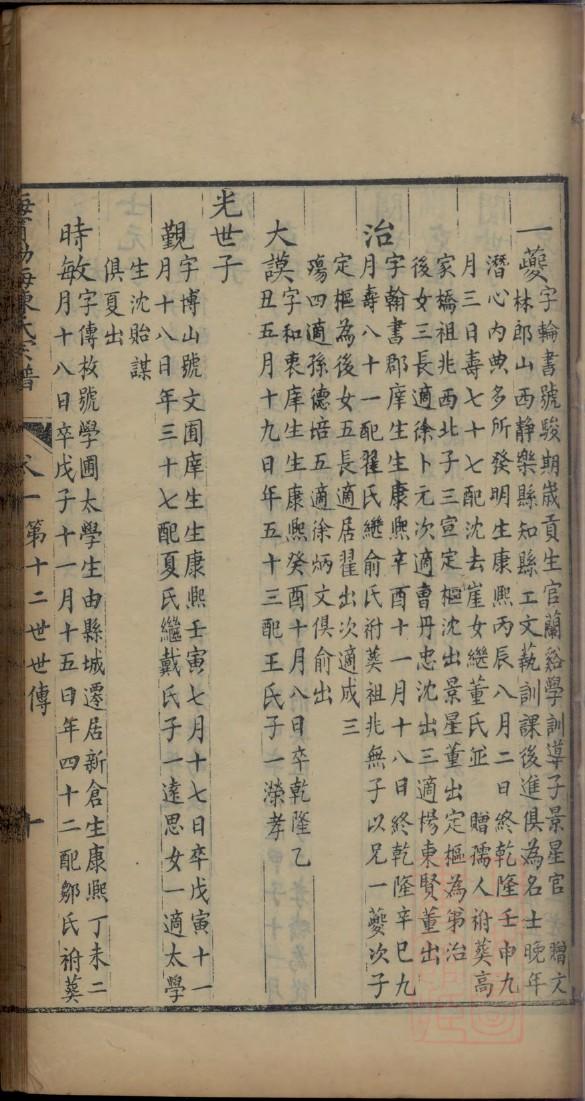 一夔字輪書號駿期歲貢生官蘭谿學訓導子景星官　贈文
林郎山西靜樂縣知縣工文蓺訓課後進俱為名士晚年
潛心內典多所發明生康熙丙辰八月二日終乾隆壬申九
月三日壽七十七配沈去崖女繼董氏並　贈孺人祔葬高
家橋祖兆西北子三宣定樞沈出景星董出定樞為弟治
後女三長適徐卜元次適曹丹忠沈出三適楊東賢董出
治字翰書郡庠生生康熙辛酉十一月十八日終乾隆辛巳九
月壽八十一配翟氏繼俞氏祔葬祖兆無子以兄一夔次子
定樞為後女五長適居翟出次適成三
殤四適孫德培五適徐炳文俱俞出
大謨字和衷庠生生康熙癸酉十月八日卒乾隆乙
丑五月十九日年五十三配王氏子一濚孝
光世子
觀字博山號文圃庠生生康熙壬寅七月十七日卒戊寅十一
月十八日年三十七配夏氏繼戴氏子一遠思女一適太學
生沈貽謀
俱夏出
時敏文字傳枚號學圃太學生由縣城遷居新倉生康熙丁未二
月十八日卒戊子十一月十五日年四十二配鄒氏祔葬
海寧渤海陳氏宗譜
第十二世世傳
十